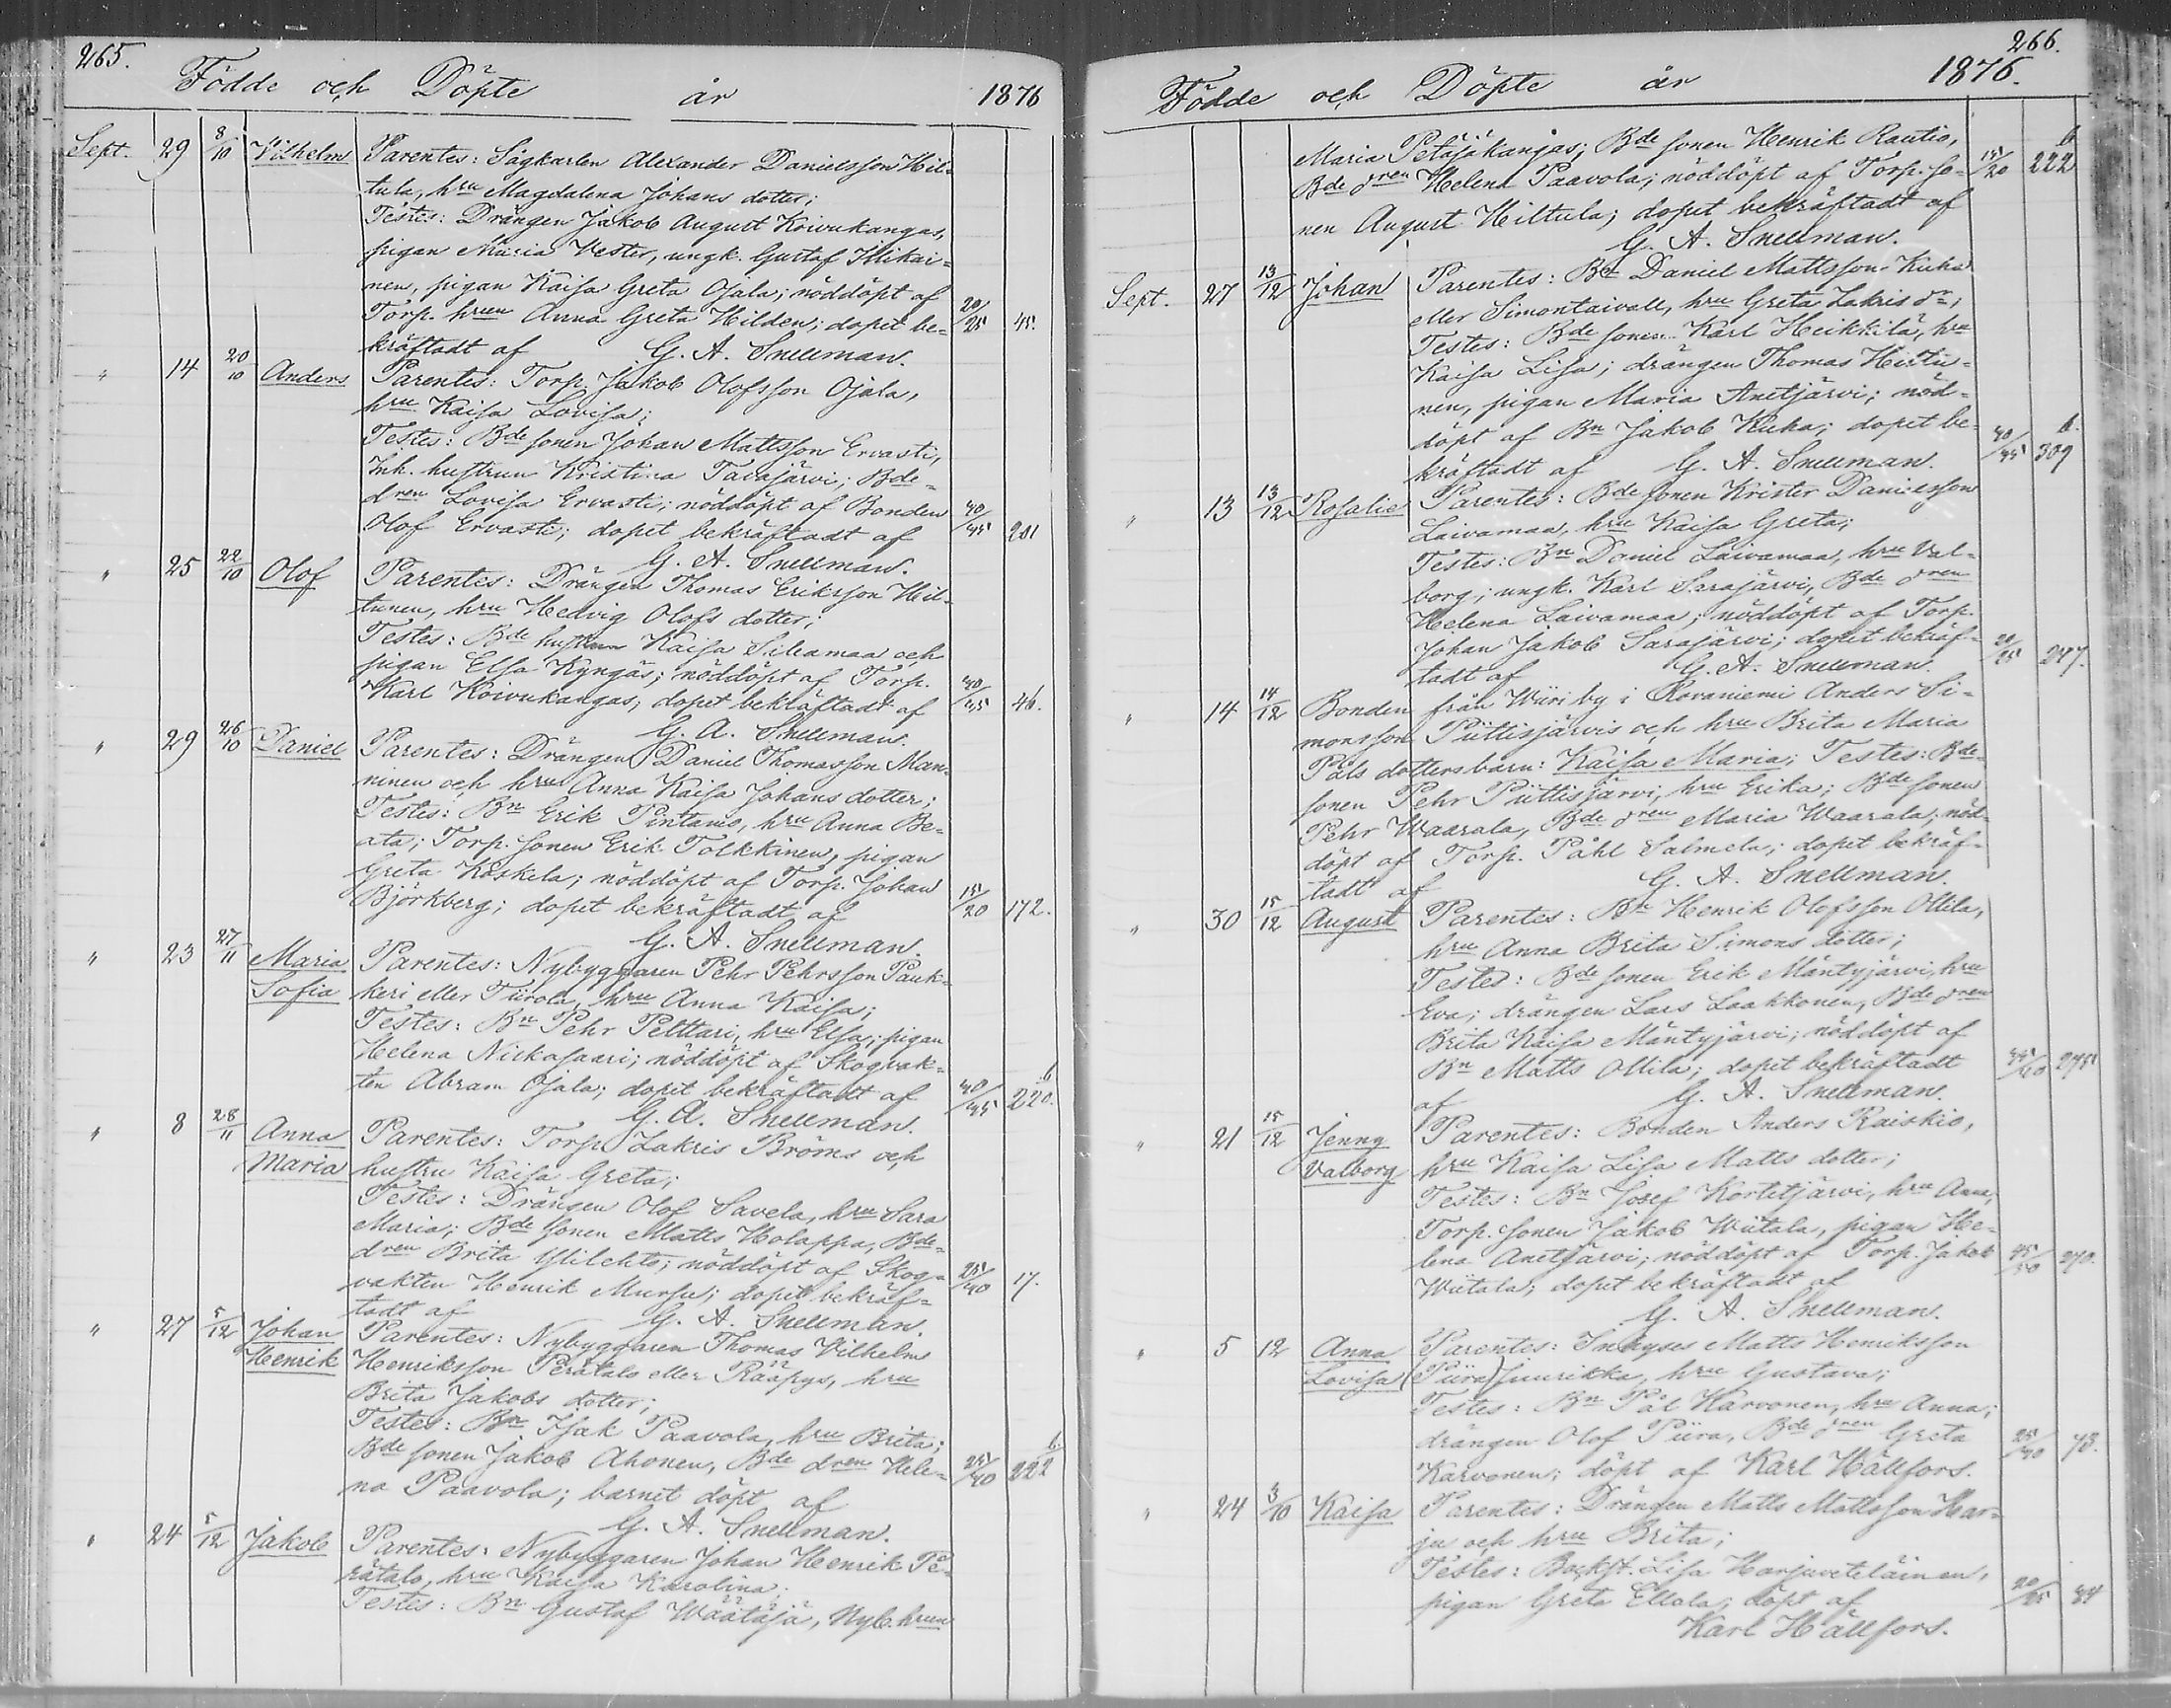 265.
Födde och Döpte år 1876
Sept. 29 8/10 Vilhelm Parentes: Sågkarlen Alexander Danielsson Hil-
tula, hru Magdalena Johans dotter;
Testes: Drängen Jakob August Koivukangas,
pigan Maria Vester, ungk. Gustaf Ihikai-
nen, pigan Kaisa Greta Ojala; nöddöpt af
Torp. hrun Anna Greta Hilden; dopet be- 20/25 45.
kräftadt af G. A. Snellman.
" 14 20/10 Anders Parentes: Torp. Jakob Olofsson Ojala,
hru Kaisa Lovisa;
Testes: Bde sonen Johan Mattsson Ervasti,
Inh. hustrun Kristina Tavajärvi; Bde-
dren Lovisa Ervasti; nöddöpt af Bonden 40/45
Olof Ervasti; dopet bekräftadt af 201
G. A. Snellman.
" 25 22/10 Olof Parentes: Drängen Thomas Eriksson Hil-
tunen, hru Hedvig Olofs dotter;
Testes: Bde hustrun Kaisa Siliamaa och
pigan Elsa Kyngäs; nöddöpt af Torp.
Karl Koivukangas, dopet bekräftadt af 40/45 46.
G. A. Snellman.
" 29 26/10 Daniel Parentes: Drängen Daniel Thomasson Man-
ninen och hru Anna Kaisa Johans dotter;
Testes: Bn Erik Pintamo, hru Anna Be-
ata; Torp. sonen Erik Tolkkinen, pigan
Greta Koskela; nöddöpt af Torp. Johan
Björkberg; dopet bekräftadt af 15/20 172.
G. A. Snellman.
" 23 27/11 Maria Parentes: Nybyggaren Pehr Pehrsson Pauk-
Sofia keri eller Tiirola, hru Anna Kaisa;
Testes: Bn Pehr Pelttari, hru Elsa; pigan
Helena Nickasaari; nöddöpt af Skogvak-
ten Abram Ojala; dopet bekräftadt af 40/45 b. 220.
G. A. Snellman.
" 8 28/11 Anna Parentes: Torp. Zakris Bröms och
Maria hustru Kaisa Greta;
Testes: Drängen Olof Savela, hru Sara
Maria; Bde sonen Matts Holappa, Bde-
dren Brita Ylilehto; nöddöpt af Skog-
vakten Henrik Mursu; dopet bekräf- 35/40 17.
tadt af G. A. Snellman.
" 27 5/12 Johan Parentes: Nybyggaren Thomas Vilhelm
Henrik Henriksson Perätalo eller Rääpys, hru
Brita Jakobs dotter;
Testes: Bn Isak Paavola, hru Brita;
Bde sonen Jakob Ahonen, Bde dren Hele- 35/40 b. 222
na Paavola; barnet döpt af
G. A. Snellman.
" 24 5/12 Jakob Parentes: Nybyggaren Johan Henrik Pe-
rätalo, hru Kaisa Karolina;
Testes: Bn Gustaf Wäätäjä, Nyb. hrun
266.
Födde och Döpte år 1876.
Maria Petäjäkangas; Bde sonen Henrik Rautio,
Bde dren Helena Paavola; nöddöpt af Torp. so- 15/20 b. 222
nen August Hiltula; dopet bekräftadt af
G. A. Snellman.
Sept. 27 13/12 Johan Parentes: Bn Daniel Mattsson Kuha
eller Simontaivall, hru Greta Zakris dr;
Testes: Bde sonen Karl Heikkilä, hru
Kaisa Lisa; drängen Thomas Hiltu-
nen, pigan Maria Anetjärvi; nöd-
döpt af Bn Jakob Kuha; dopet be-
kräftadt af G. A. Snellman. 40/45 b. 309
" 13 13/12 Rosalie Parentes: Bde sonen Krister Danielsson
Laivamaa, hru Kaisa Greta;
Testes: Bn Daniel Laivamaa, hru Val-
borg; ungk. Karl Sarajärvi, Bde dren
Helena Laivamaa; nöddöpt af Torp.
Johan Jakob Sarajärvi; dopet bekräf- 20/25 247.
tadt af G. A. Snellman.
" 14 14/12 Bonden från Wiiri by i Rovaniemi Anders Si-
monsson Piittisjärvis och hru Brita Maria
Påls dotters barn: Kaisa Maria; Testes: Bde-
sonen Pehr Piittisjärvi, hru Erika; Bde sonen
Pehr Waarala, Bde dren Maria Waarala; nöd-
döpt af Torp. Påhl Salmela; dopet bekräf-
tadt af G. A. Snellman.
" 30 15/12 August Parentes: Bn Henrik Olofsson Ollila,
hru Anna Brita Simons dotter;
Testes: Bde sonen Erik Mäntyjärvi, hru
Eva; drängen Lars Laakkonen, Bde dren
Brita Kaisa Mäntyjärvi; nöddöpt af
Bn Matts Ollila; dopet bekräftadt
af G. A. Snellman.
" 21 15/12 Jenny Parentes: Bonden Anders Raiskio,
Valborg hru Kaisa Lisa Matts dotter;
Testes: Bn Josef Kortetjärvi, hru Anna,
Torp. sonen Jakob Wiitala, pigan He-
lena Anetjärvi; nöddöpt af Torp. Jakob 45/50 270.
Wiitala; dopet bekräftadt af
G. A. Snellman.
" 5 12 Anna Parentes: Inhyses Matts Henriksson
Lovisa (Piira) Juurikka, hru Gustava;
Testes: Bn Pål Karvonen, hru Anna;
drängen Olof Piira, Bde dren Greta 35/40 73.
Karvonen; döpt af Karl Hällfors.
" 24 3/10 Kaisa Parentes: Drängen Matts Mattsson Har-
ju och hru Brita;
Testes: Backst. Lisa Harjuveteläinen,
pigan Greta Ellala; döpt af 20/25 84
Karl Hällfors.